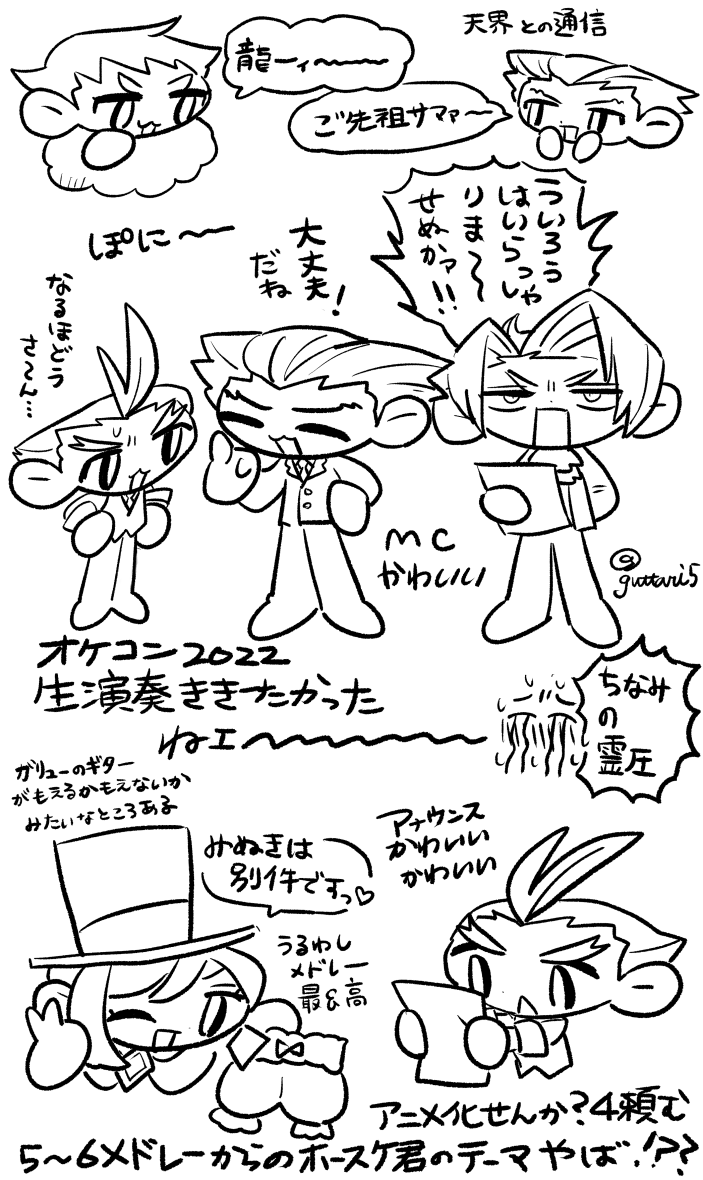 天界との通信
龍ーィ〜〜〜
ご先祖サマァ〜
ういろう
はいらっしゃ
りま〜〜
せぬかァ!!
ぽに〜〜
大丈夫
だね!
なるほどう
さ〜ん…
MC
かわいい
@guttari5
オケコン2022
生演奏ききたかった
ねェ〜〜〜〜〜
ちなみ
の
霊圧
ガリューのギター
がもえるかもえないか
みたいなところある
みぬきは
別件ですっ♡
アナウンス
かわいい
かわいい
うるわし
メドレー
最&高
アニメ化せんか?4頼む
5〜6メドレーからのホースケ君のテーマやば!??